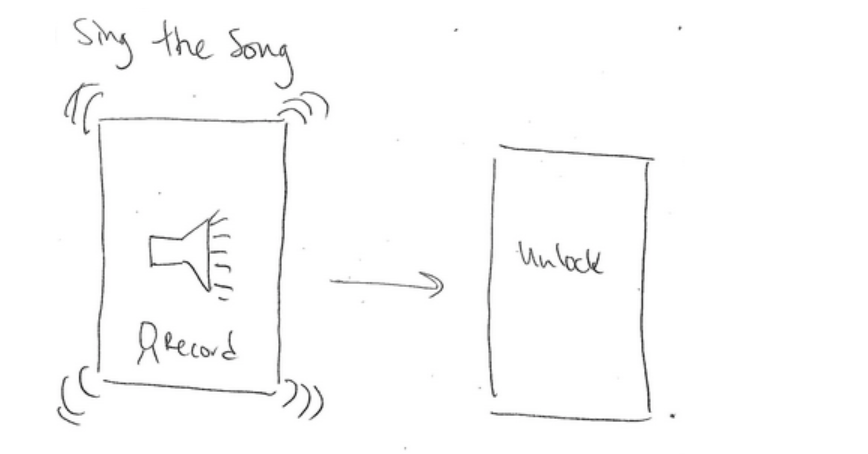 Sing the Song
Record
Unlock